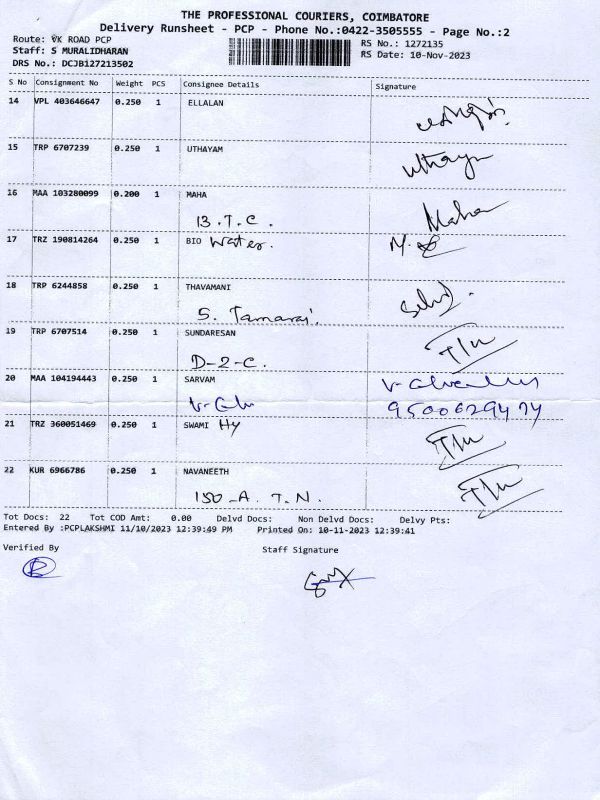 THE PROFESSIONAL COURIERS, COIMBATORE
Delivery Runsheet - PCP - Phone No.:0422-3505555 - Page No.:2
Route: VK ROAD PCP
RS No.: 1272135
Staff: S MURALIDHARAN
RS Date: 10-Nov-2023
DRS No.: DCJB127213502
S No Consignment No Weight PCS Consignee Details Signature
14 VPL 403646647 0.250 1 ELLALAN
15 TRP 6707239 0.250 1 UTHAYAM
Uthayam
16 MAA 103280099 0.200 1 MAHA
Maha
B.T.C.
17 TRZ 190814264 0.250 1 BIO Water.
18 TRP 6244858 0.250 1 THAVAMANI
S. Tamarai.
19 TRP 6707514 0.250 1 SUNDARESAN
D-2-C.
20 MAA 104194443 0.250 1 SARVAM
21 TRZ 360051469 0.250 1 SWAMI Hy
22 KUR 6966786 0.250 1 NAVANEETH
150-A.T.N.
Tot Docs: 22 Tot COD Amt: 0.00 Delvd Docs: Non Delvd Docs: Delvy Pts:
Entered By :PCPLAKSHMI 11/10/2023 12:39:49 PM Printed On: 10-11-2023 12:39:41
Verified By
Staff Signature